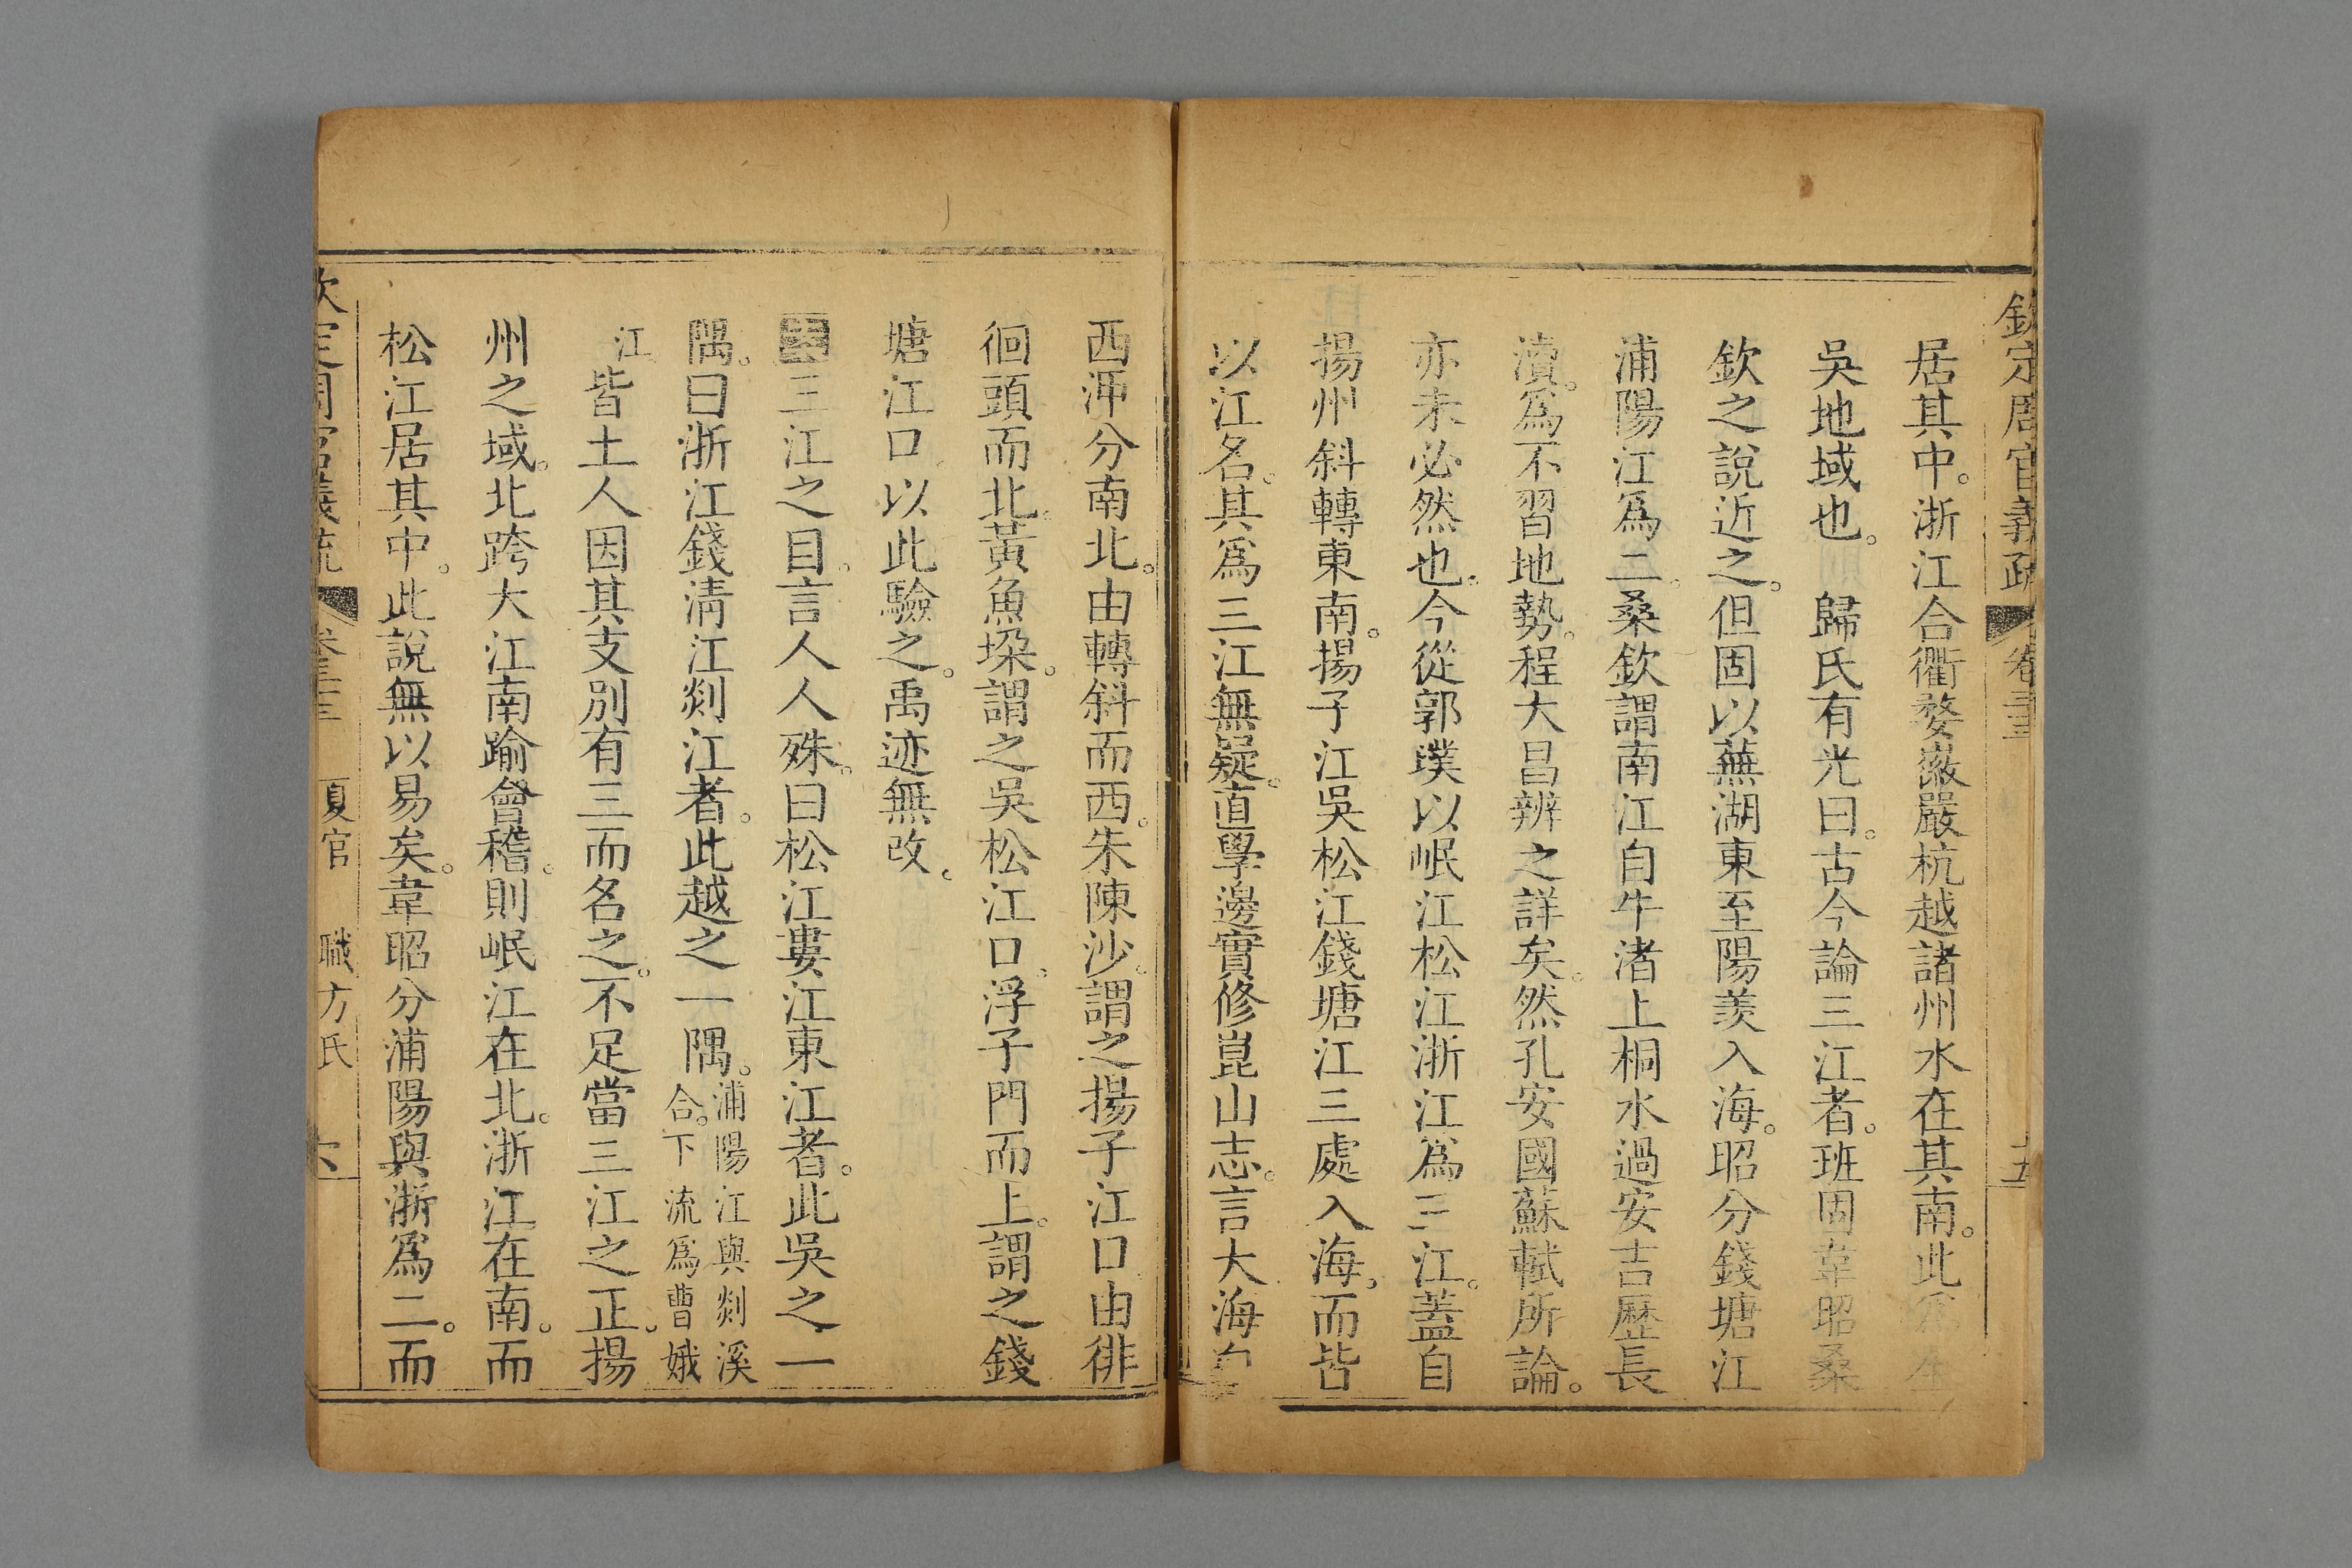 欽定周官義疏 卷三十三
居其中。浙江合衢婺嚴杭越諸州水在其南。此
吳地域也。 歸氏有光曰。古今論三江者。班固韋昭桑
欽之說近之。但固以蕪湖東至陽羨入海。昭分錢塘江
浦陽江爲二。桑欽謂南江自牛渚上桐水過安吉歷長
瀆。爲不習地勢。程大昌辨之詳矣。然孔安國蘇軾所論。
亦未必然也。今從郭璞以岷江松江浙江爲三江。蓋自
揚州斜轉東南。揚子江吳松江錢塘江三處入海。而皆
以江名。其爲三江無疑。直學邊實修崑山志。言大海自
西沜分南北。由轉斜而西。朱陳沙。謂之揚子江口。由徘
徊頭而北。黃魚垛。謂之吳松江口。浮子門而上。謂之錢
塘江口。以此驗之。禹迹無改。
三江之目。言人人殊。曰松江婁江東江者。此吳之一
隅。曰浙江錢淸江剡江者。此越之一隅。浦陽江與剡溪合。下流爲曹娥
江。皆土人因其支別有三而名之。不足當三江之正。揚
州之域。北跨大江南踰會稽。則岷江在北。浙江在南。而
松江居其中。此說無以易矣。韋昭分浦陽與浙爲二。而
欽定周官義疏 卷三十三 夏官 職方氏